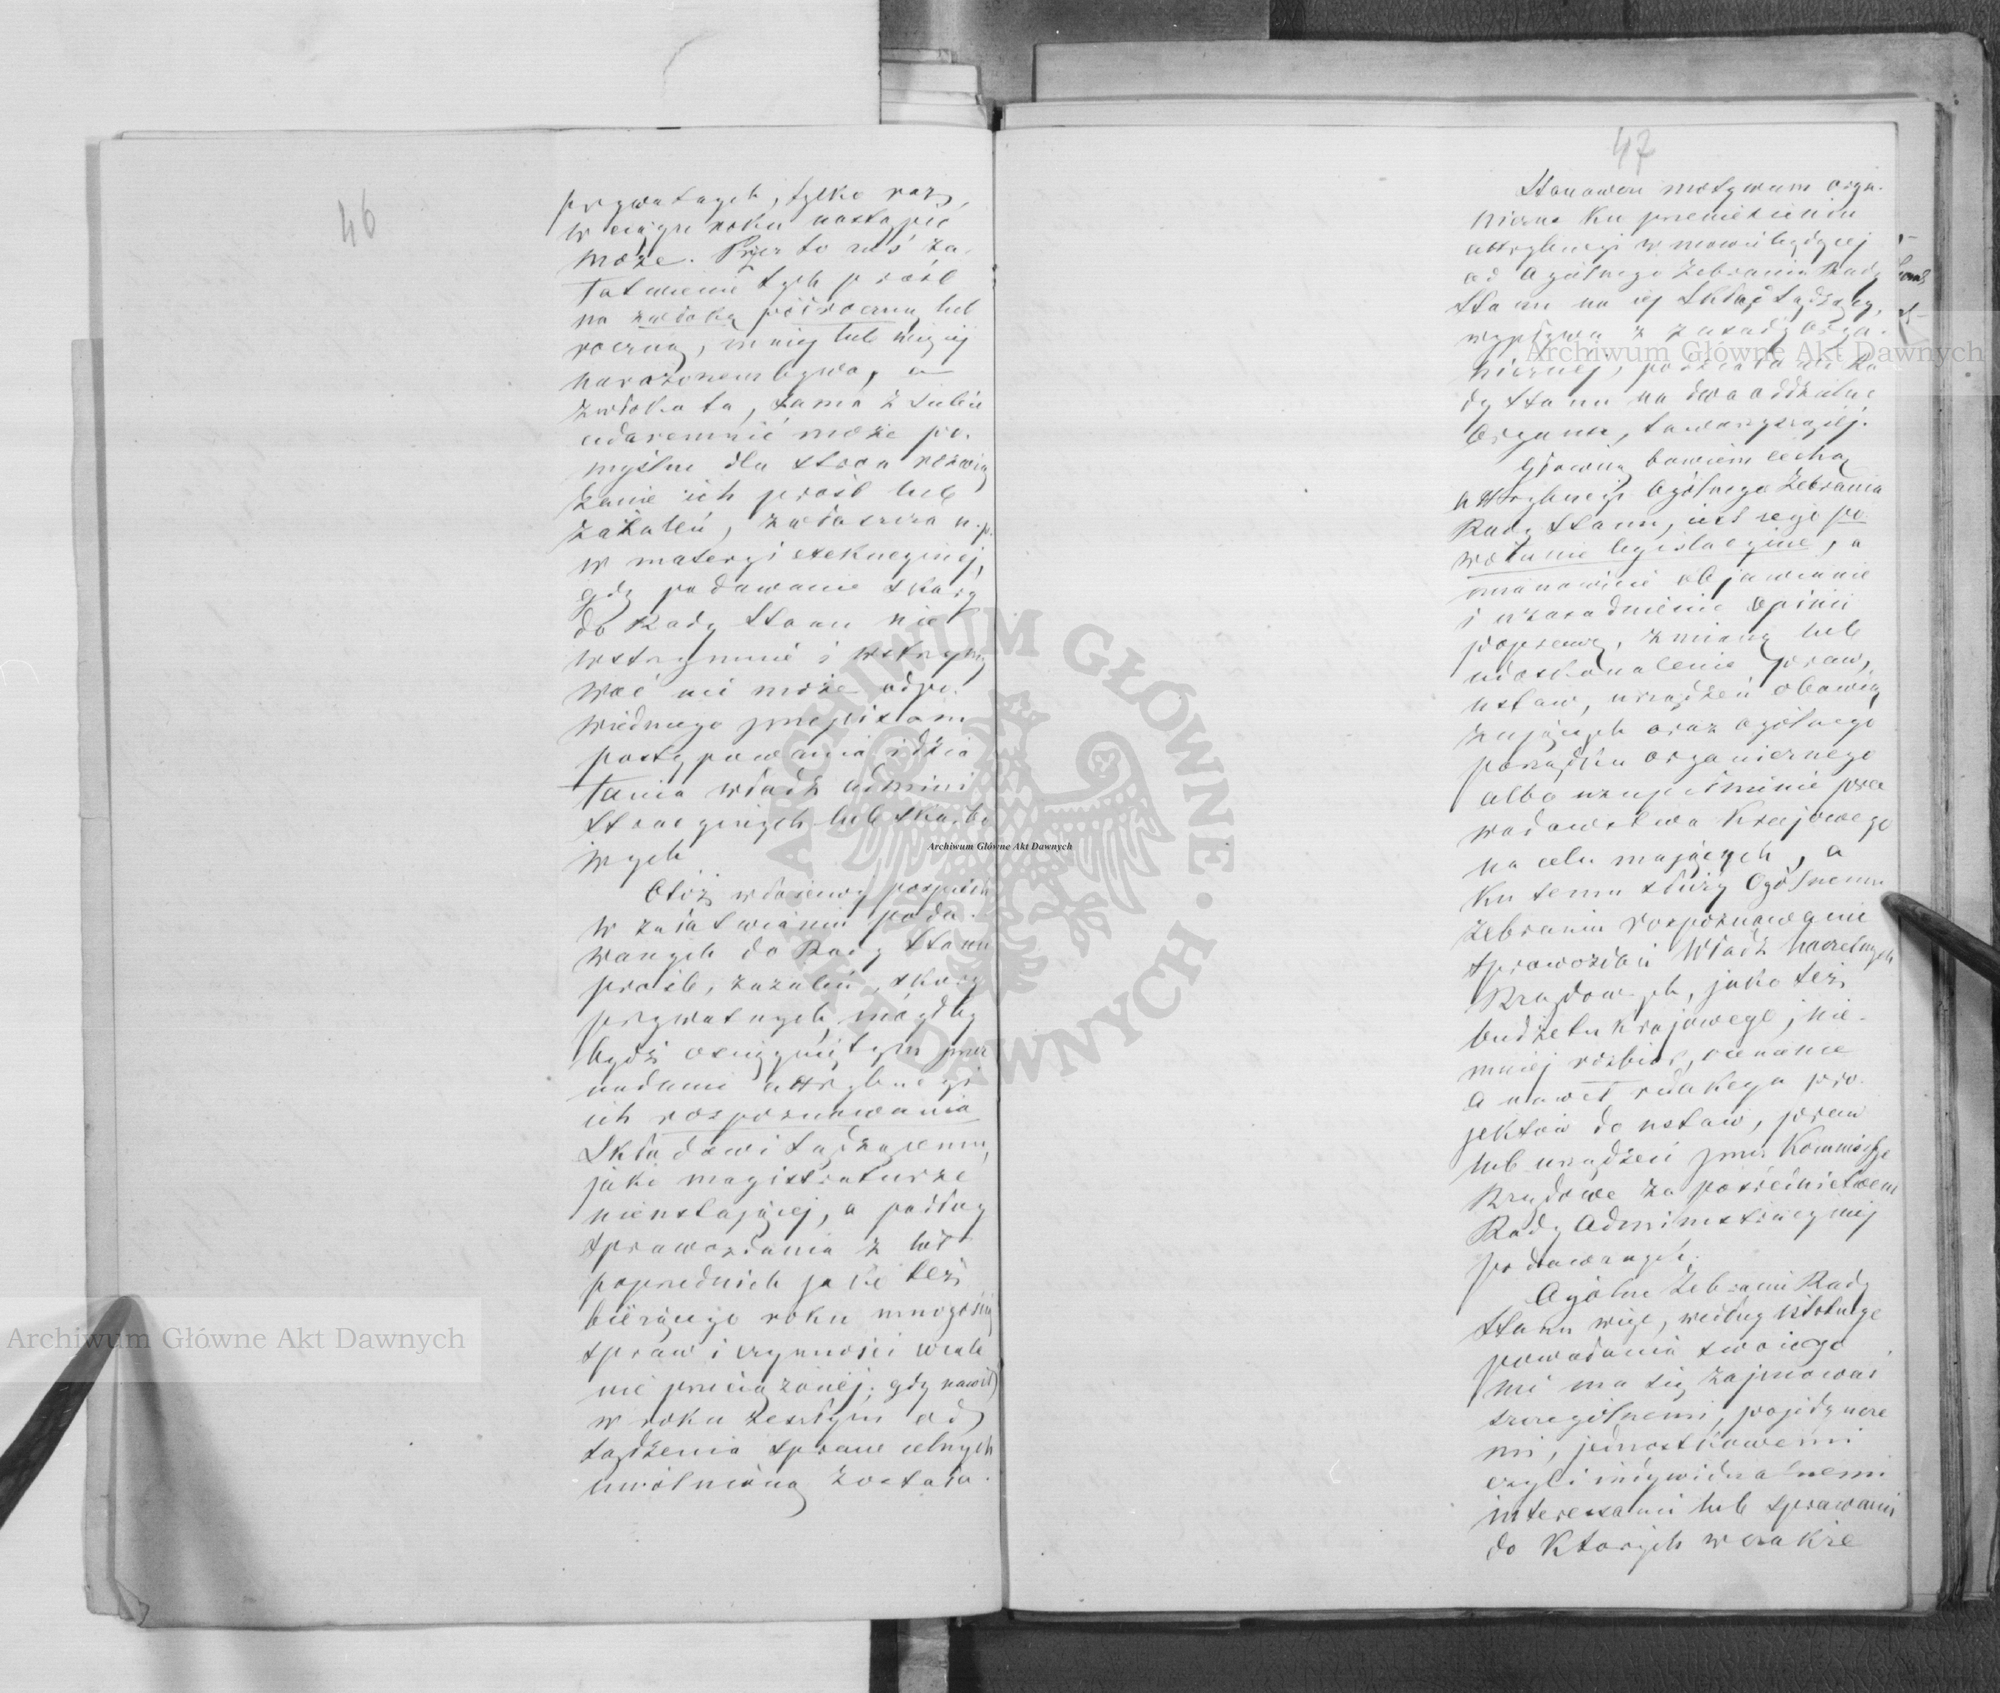 46
prywatnych, tylko raz,
w ciągu roku nastąpić
może. Przez to zaś za-
łatwienie tych prośb
na zwłokę półroczną lub
roczną, mniej lub więcej
narażonem bywa, a
zwłoka ta, sama z siebie
udaremnić może po-
myślne dla stron rozwią
zanie ich prośb lub
zażaleń, zwłaszcza n.p.
w materyi exekucyjnej,
gdy podawanie skarg
do Rady Stanu nie
wstrzymuie i wstrzymy
wać nie może odpo-
wiedniego przepisom
postępowania i dzia
łania władz admini
stracyjnych lub skarbo
wych
Otóż właściwy pośpiech
w załatwianiu poda-
wanych do Rady Stanu
prośb, zażaleń, skarg
prywatnych, mógłby
bydź osiągniętym przez
nadanie attrybucyi
ich rozpoznawania
Składowi Sądzącemu,
jako magistraturze
nieustającej, a podług
sprawozdania z lat
poprzednich jako też
bieżącego roku mnogością
spraw i czynności wcale
nie przeciążonej; gdy nawet
w roku zeszłym od
sądzenia spraw celnych
uwolnioną została.
47
Stanowcze motywum orga-
niczne ku przeniesieniu
attrybucyi w mowie będącej
od Ogólnego Zebrania Rady
Stanu na iej Skład Sądzący,
wypływa z zasady orga-
nicznej, podziału Ra
dy Stanu na dwa oddzielne
Organa,
Główną bowiem cechą
attrybucyi Ogólnego Zebrania
Rady Stanu, iest iego po
wołanie legislacyjne, a
mianowicie objawianie
i uzasadnienie opinii
poprawę, zmianę lub
udoskonalenie praw,
ustaw, urządzeń obowią
zujących oraz ogólnego
porządku organicznego
albo uzupełnienie pra
wodawstwa Krajowego
na celu mających, a
Ku temu służy Ogólnemu
Zebraniu rozpoznawanie
sprawozdań Władz Naczelnych
Rządowych, jako też
budżetu krajowego, nie-
mniej rozbiór, ocenianie
a nawet redakcya pro-
jektów do ustaw, praw
lub urządzeń przez Kommissye
Rządowe za pośrednictwem
Rady Administracyjnej
podawanych.
Ogólne Zebranie Rady
Stanu więc, według istotnego
powołania swoiego
nie ma się zajmować
szczególnemi, pojedyncze
mi, jednostkowemi
czyli indywidualnemi
interessami lub sprawami
do których wszakże
Archiwum Główne Akt Dawnych
Archiwum Główne Akt Dawnych
Archiwum Główne Akt Dawnych
ARCHIWUM GŁÓWNE · AKT DAWNYCH ·